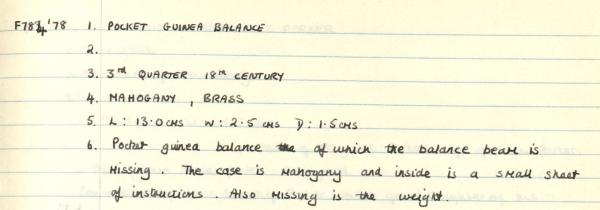 F784'78 1. POCKET GUINEA BALANCE
2.
3. 3rd QUARTER 18th CENTURY
4. MAHOGANY, BRASS
5. L: 13.0 CMS W: 2.5 CMS D: 1.5 CMS
6. Pocket guinea balance of which the balance beam is
missing. The case is mahogany and inside is a small sheet
of instructions. Also missing is the weight.